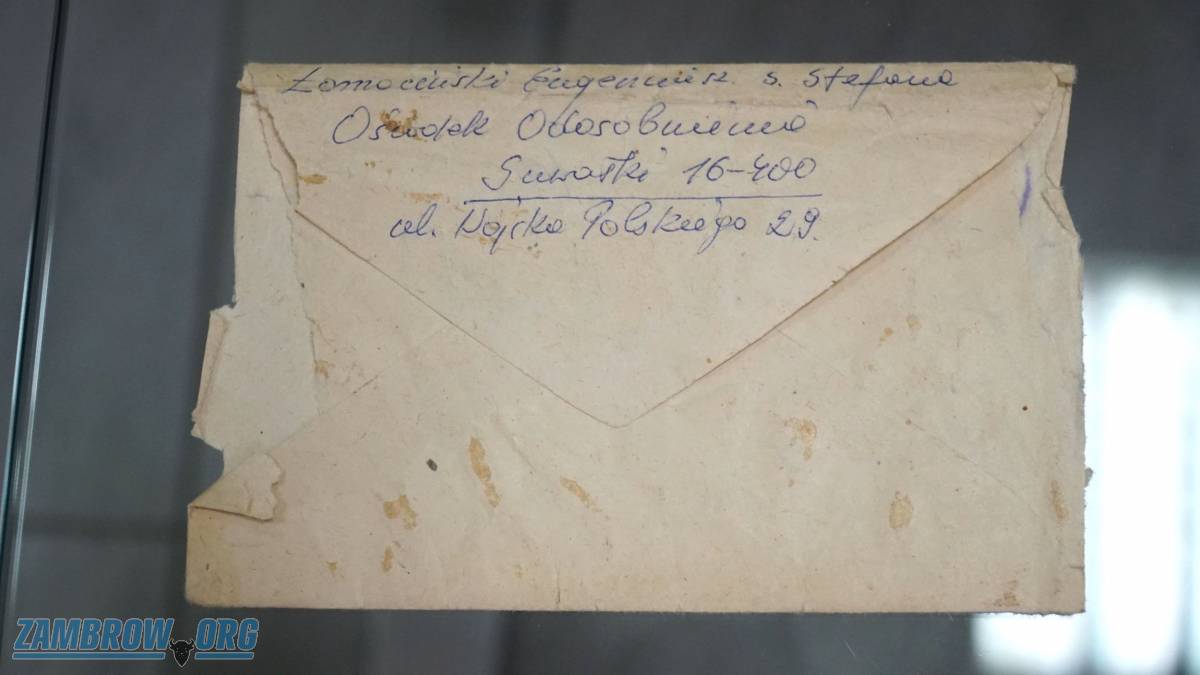 Łomociński Eugeniusz s. Stefana
Ośrodek Odosobnienia
Suwałki 16-400
ul. Wojska Polskiego 29.
ZAMBROW.ORG